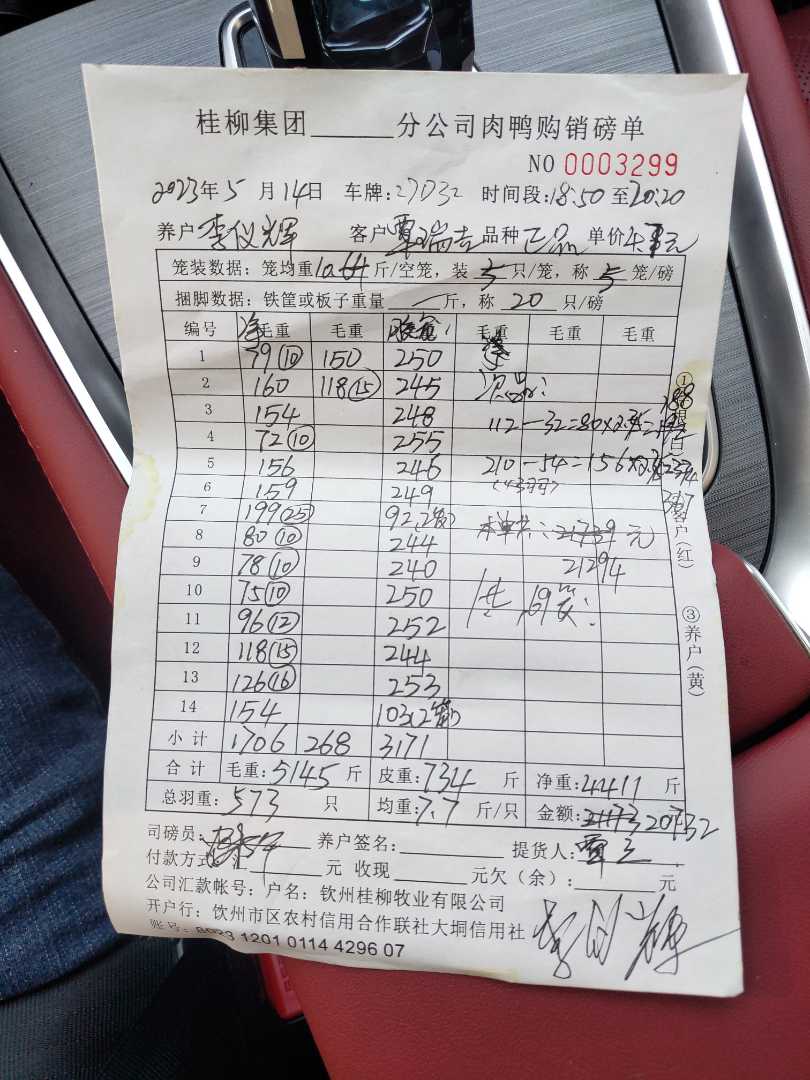 桂柳集团______分公司肉鸭购销磅单
NO 0003299
2023年5月14日 车牌:27032 时间段:18:50至20:20
养户李仪辉 客户覃瑞吉 品种正品 单价
笼装数据:笼均重 斤/空笼,装5只/笼,称5笼/磅
捆脚数据:铁筐或板子重量 斤,称20只/磅
编号 净毛重 毛重 毛重 毛重 毛重
1 79⑩ 150 250
2 160 118⑮ 245 次品:
3 154 248
4 72⑩ 255 112-32=80×2.35=188
5 156 246 210-54=156×2.35
6 159 249
7 199㉕ 92(2笼)
8 80⑩ 244 本单共:21739元
9 78⑩ 240 21294
10 75⑩ 250 共69笼:
11 96⑫ 252
12 118⑮ 244
13 126⑯ 253
14 154 103(2笼)
小计 1706 268 3171
合计 毛重:5145斤 皮重:734斤 净重:4411斤
总羽重:573只 均重:7.7斤/只 金额:20732
司磅员: 养户签名: 提货人:
付款方式: 元 收现 元欠(余): 元
公司汇款帐号:户名:钦州桂柳牧业有限公司
开户行:钦州市区农村信用合作联社大垌信用社
账号:8023 1201 0114 4296 07
客户(红)
③养户(黄)